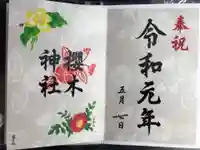 奉祝
令和元年
五月一日
櫻木
神社